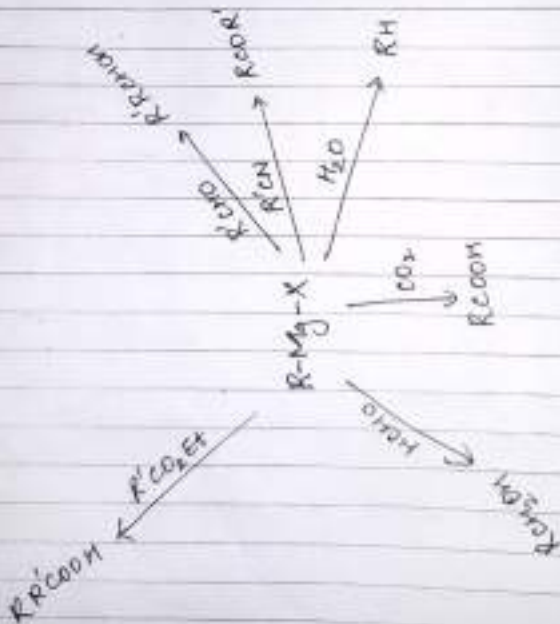 R-Mg-X
R'CHO
R'RCHOH
R'CN
RCOR'
H₂O
RH
CO₂
RCOOH
HCHO
RCH₂OH
R'CO₂Et
RR'COOH